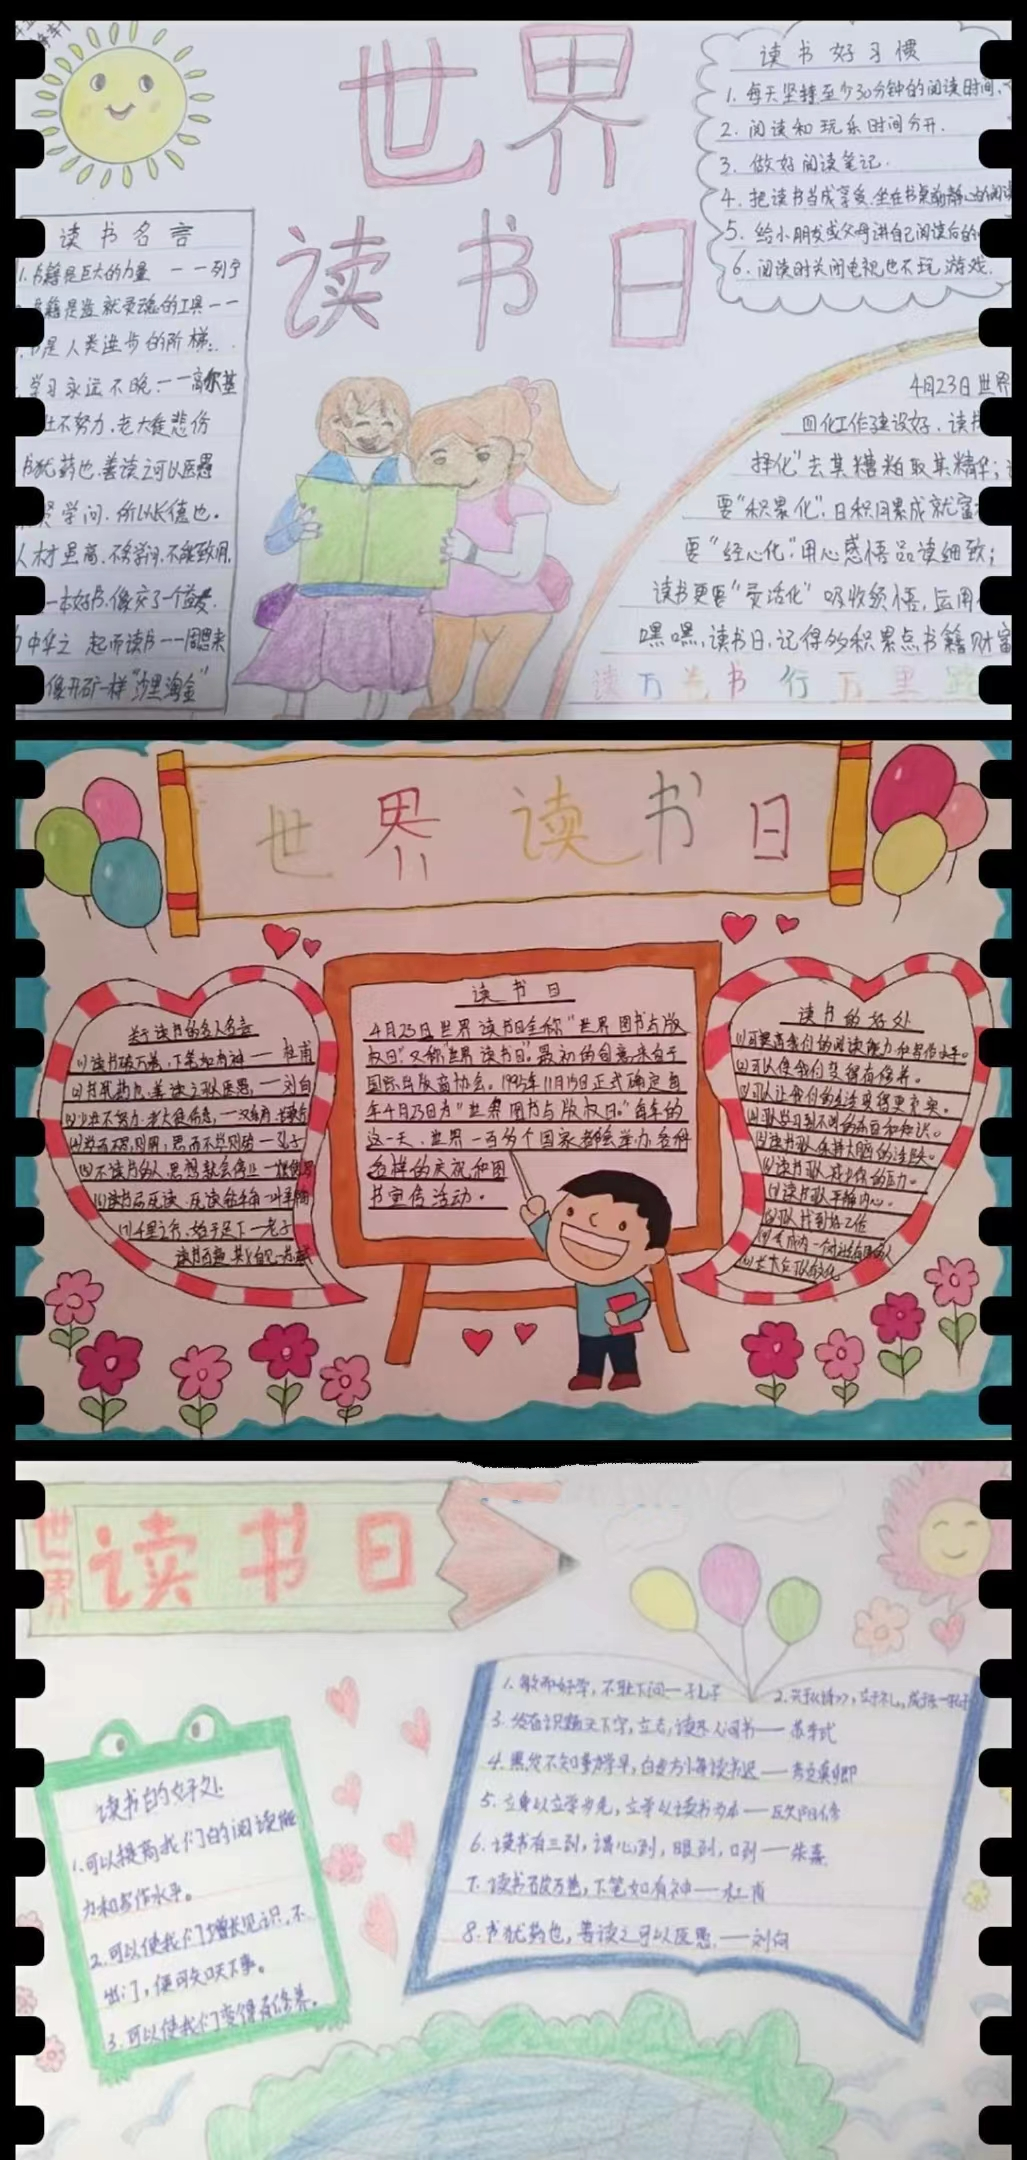 世界
读书日
读书名言
1.书籍是巨大的力量 ——列宁
书籍是造就灵魂的工具——
书是人类进步的阶梯
学习永远不晚.——高尔基
壮不努力.老大徒悲伤
书犹药也.善读之可以医愚
学问.所以长德也.
人材里高.不学问.不能致用.
一本好书.像交了一个益友.
中华之 起而读书——周恩来
像开矿一样"沙里淘金"
读书好习惯
1.每天坚持至少30分钟的阅读时间.
2.阅读和玩乐时间分开.
3.做好阅读笔记.
4.把读书当成享受.坐在书桌前静心的阅读
5.给小朋友或父母讲自己阅读后的
6.阅读时关闭电视也不玩游戏.
4月23日世界
四化工作建设好.读书
择化"去其糟粕取其精华;
要"积累化".日积月累成就富
要"经心化".用心感悟品读细致;
读书更要"灵活化"吸收领悟.运用
嘿嘿,读书日.记得多积累点书籍财富
读万卷书行万里路
世界读书日
关于读书的名人名言
(1)读书破万卷,下笔如有神——杜甫
(2)书犹药也,善读之可以医愚,——刘向
(3)少壮不努力,老大徒伤悲,——汉乐府
(4)学而不思则罔,思而不学则殆——孔子
(5)不读书的人,思想就会停止——狄德罗
(7)千里之行,始于足下—老子
读书百遍 其义自见
读书日
4月23日世界读书日全称"世界图书与版
权日"又称"世界读书日"。最初的创意来自于
国际出版商协会。1995年11月15日正式确定每
年4月23日为"世界图书与版权日。"每年的
这一天,世界一百多个国家都会举办各种
各样的庆祝和图
书宣传活动。
读书的好处
(1)可提高我们的阅读能力和写作水平。
(2)可以使我们变得有修养。
(3)可以让我们的生活变得更充实。
(4)可以学习到不同的东西和知识。
(5)读书可以保持大脑的活跃。
(6)读书可以减少你的压力。
(7)读书可以平静内心。
(8)可以找到好工作
世界
读书日
读书的好处
1.可以提高我们的阅读能
力和写作水平。
2.可以使我们增长见识,不
出门,便可知天下事。
3.可以使我们变得有修养。
1.敏而好学,不耻下问—孔子
3.发奋识遍天下字,立志读尽人间书——苏轼
4.黑发不知勤学早,白首方悔读书迟——颜真卿
5.立身以立学为先,立学以读书为本——欧阳修
6.读书有三到,谓心到,眼到,口到——朱熹
7.读书破万卷,下笔如有神——杜甫
8.书犹药也,善读之可以医愚.——刘向